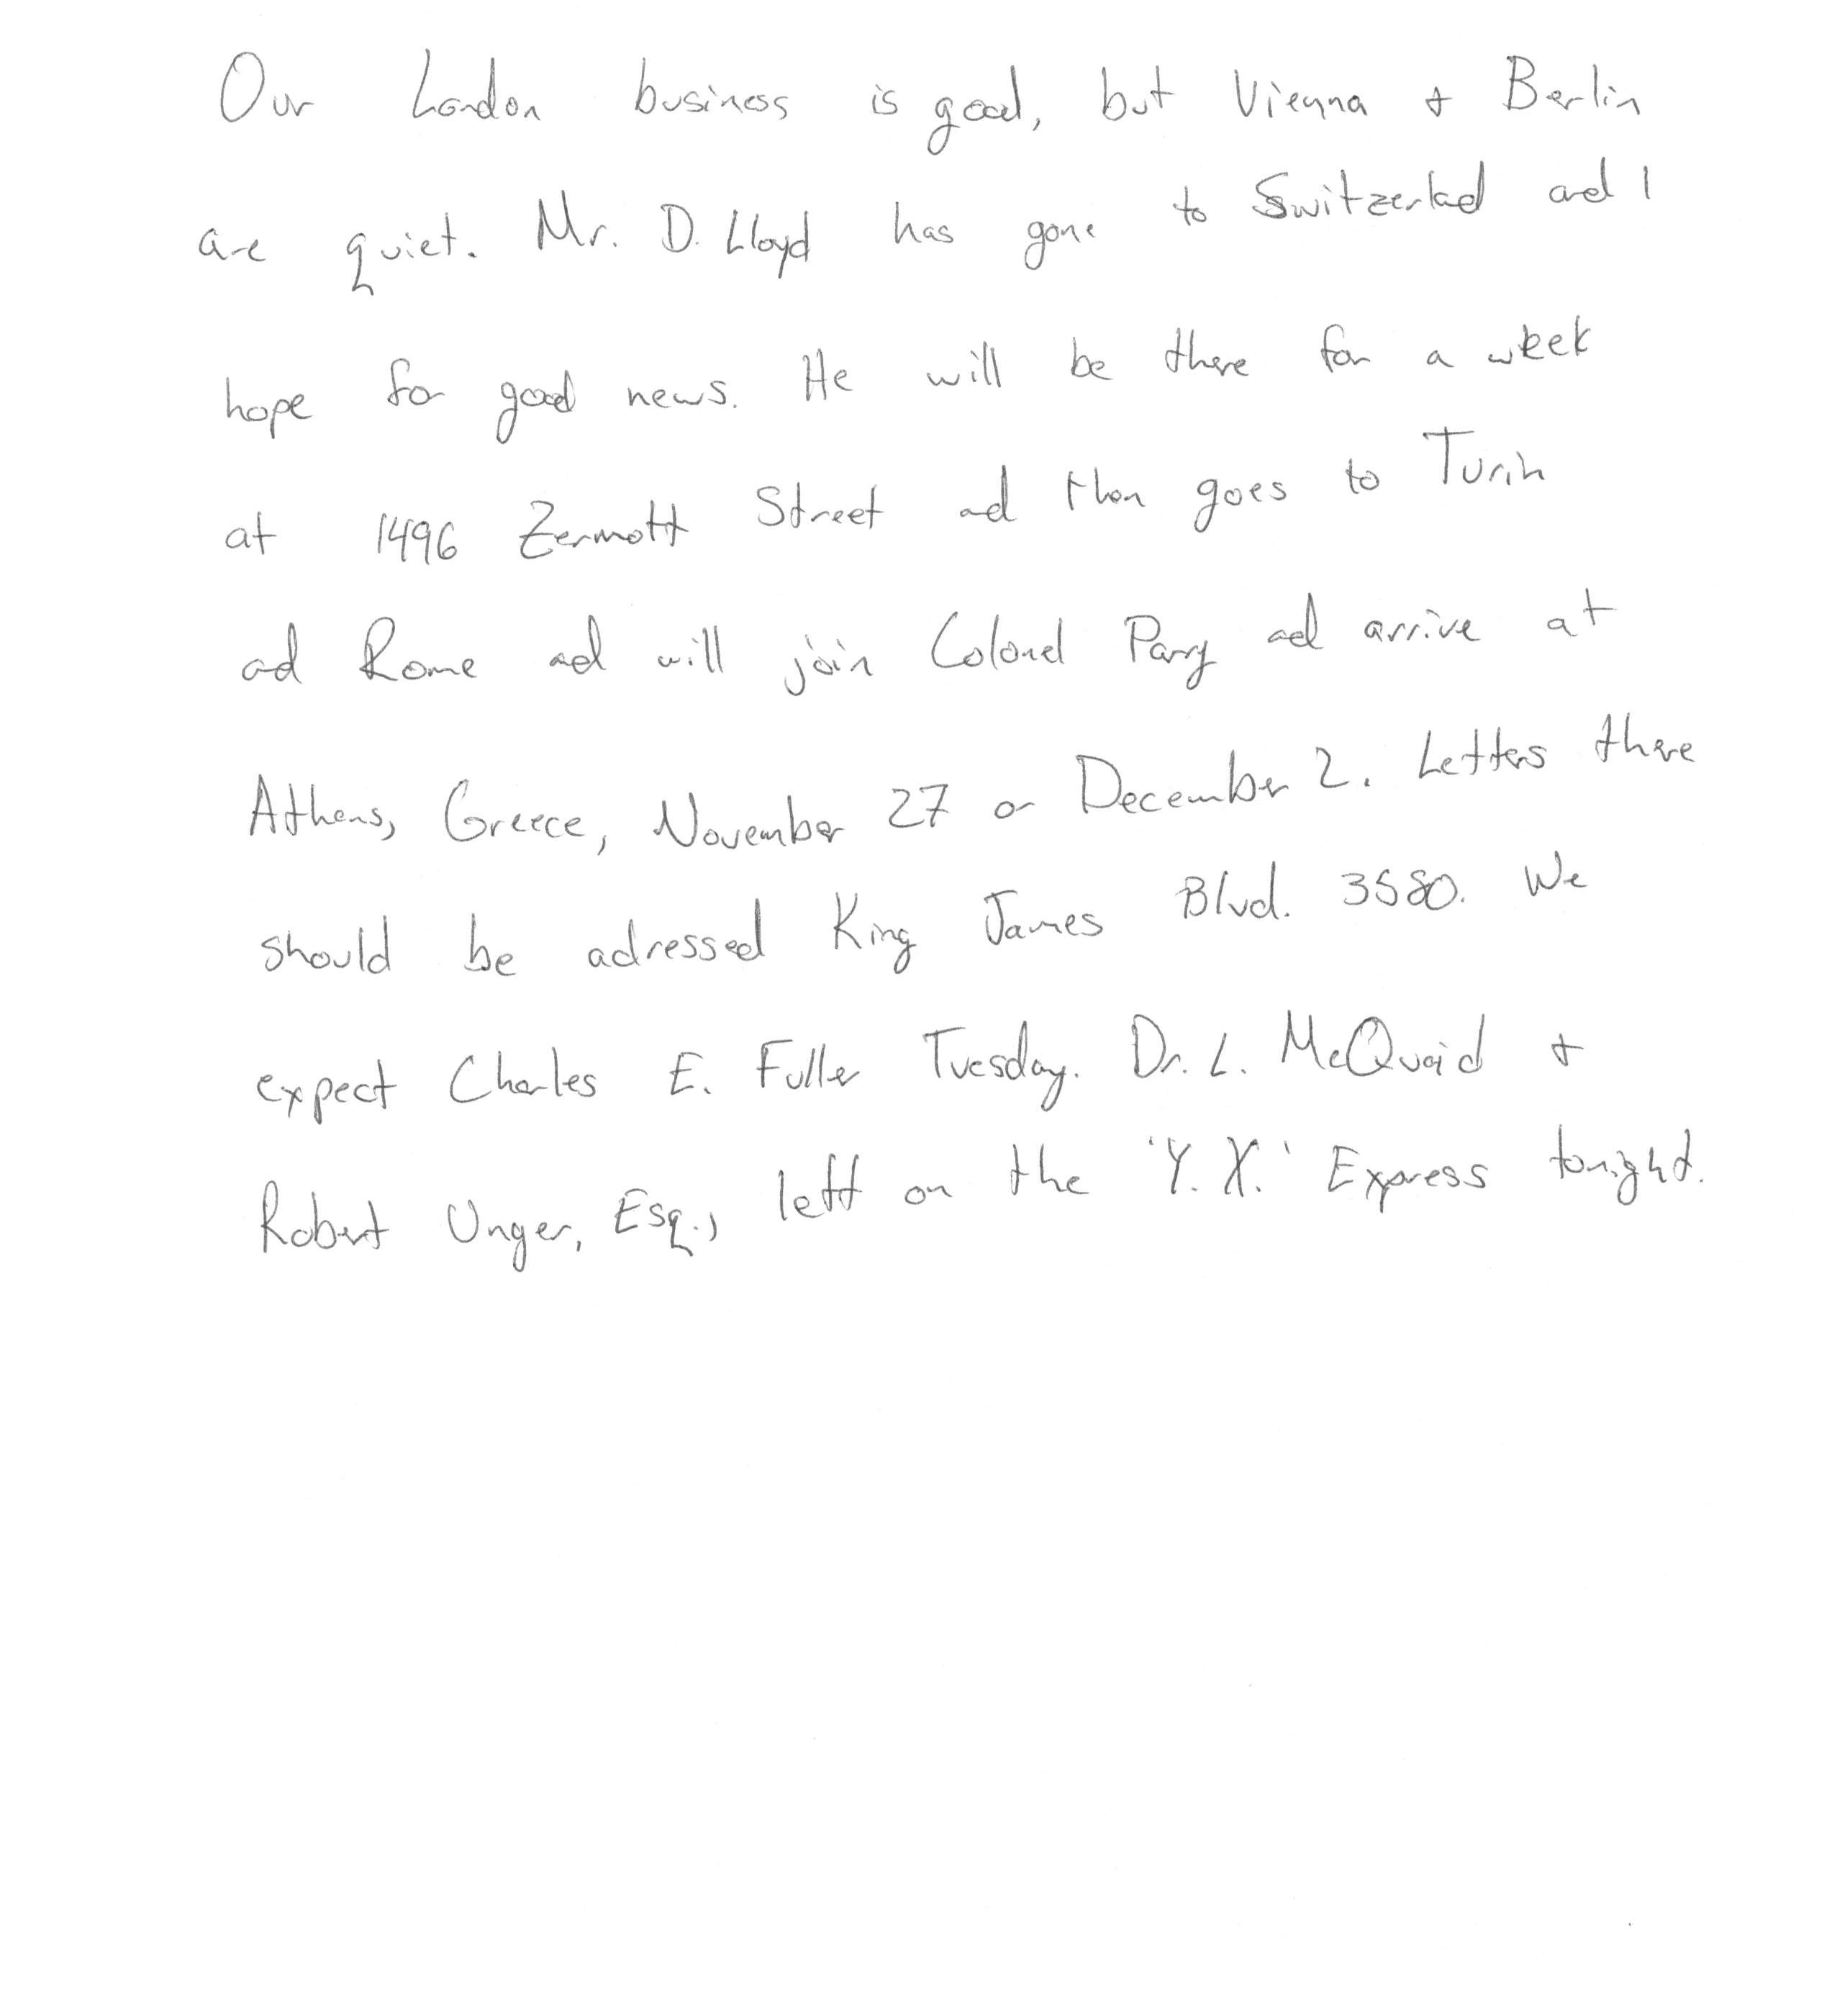 Our London business is good, but Vienna + Berlin
are quiet. Mr. D. Lloyd has gone to Switzerland and I
hope for good news. He will be there for a week
at 1496 Zermott Street and then goes to Turin
and Rome and will join Colonel Parry and arrive at
Athens, Greece, November 27 or December 2. Letters there
should be adressed King James Blvd. 3580. We
expect Charles E. Fuller Tuesday. Dr. L. McQuaid +
Robert Unger, Esq., left on the 'Y. X.' Express tonight.